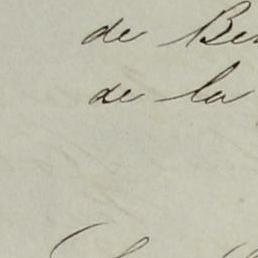 de Be
de la